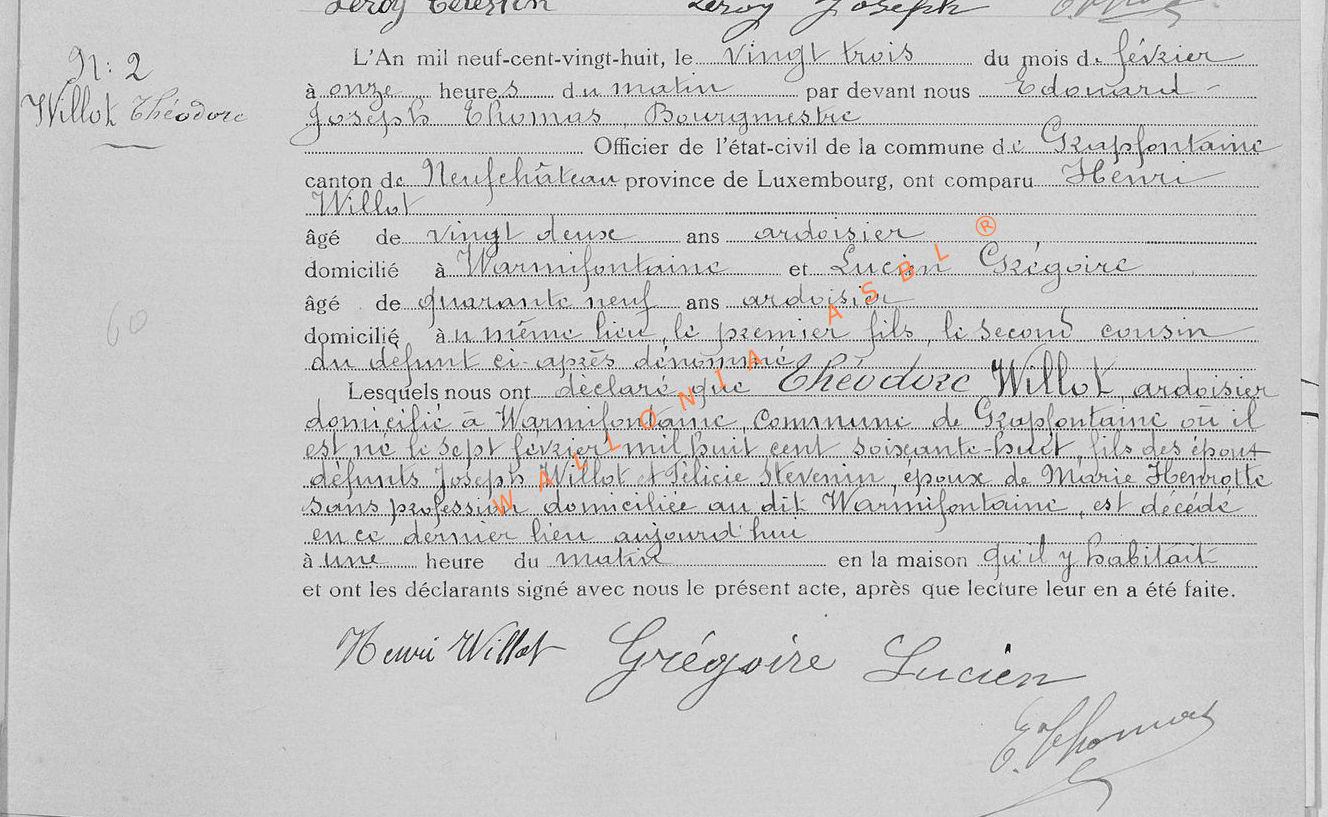 Leroy Célestin Leroy Joseph
N: 2
Willot Théodore
L'An mil neuf-cent-vingt-huit, le vingt trois du mois de février
à onze heures du matin par devant nous Edouard-
Joseph Thomas, Bourgmestre
Officier de l'état-civil de la commune de Grapfontaine
canton de Neufchâteau province de Luxembourg, ont comparu Henri
Willot
âgé de vingt deux ans ardoisier
domicilié à Warmifontaine et Lucien Grégoire
âgé de quarante neuf ans ardoisier
domicilié au même lieu, le premier fils, le second cousin
du défunt ci-après dénommé
Lesquels nous ont déclaré que Théodore Willot, ardoisier
domicilié à Warmifontaine, commune de Grapfontaine où il
est né le sept février mil huit cent soixante-huit, fils des époux
défunts Joseph Willot et Félicie Stevenin, époux de Marie Henrotte
sans profession domiciliée au dit Warmifontaine, est décédé
en ce dernier lieu aujourd'hui
à une heure du matin en la maison qu'il y habitait
et ont les déclarants signé avec nous le présent acte, après que lecture leur en a été faite.
60
Henri Willot Grégoire Lucien
E. Thomas
WALLONIA ASBL ®